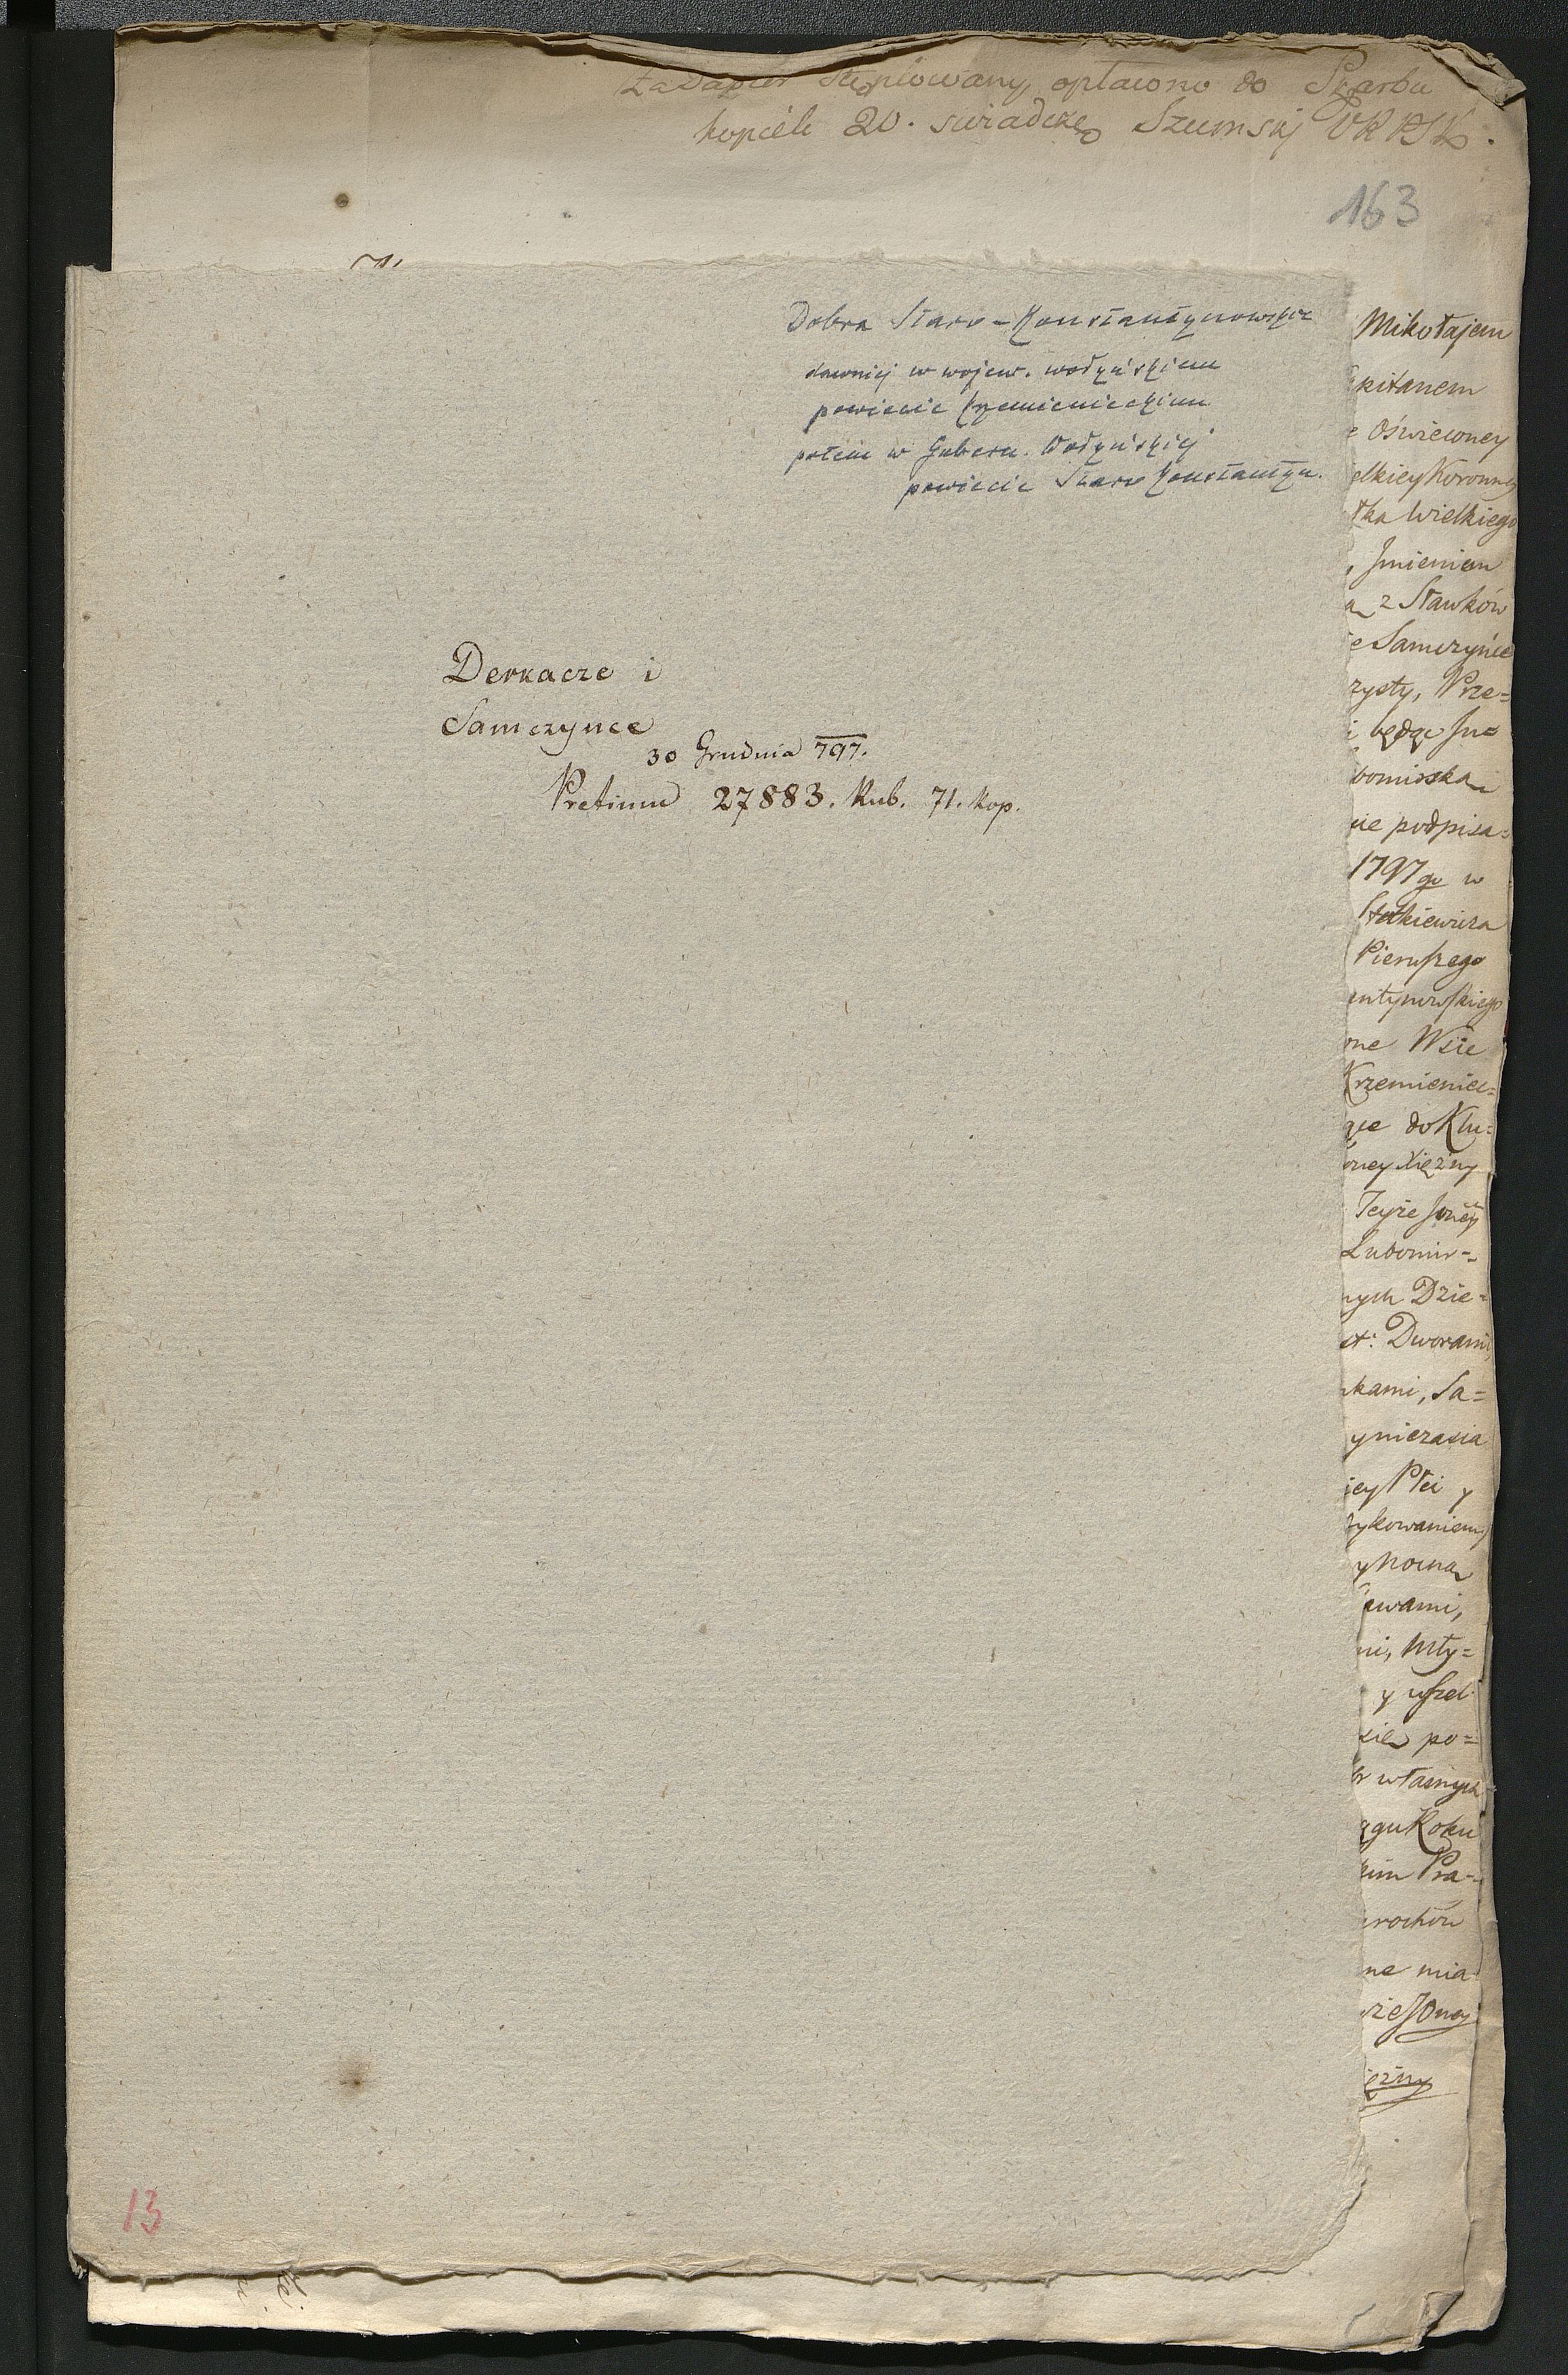 Za Papier Stęplowany, opłacono do Skarbu
kopeiek 20. świadczę Szumski
163
Dobra Staro-Konstantynowskie
dawniej w wojew. wołyńskiem
powiecie krzemienieckiem
potem w Gubern. Wołyńskiej
powiecie Staro Konstantyn.
Derkacze i
Samczynce
30 Grudnia 797.
Pretium 27883. Rub. 71. kop.
Mikołajem
pitanem
e Oświeconey
elkiey Koronney
tka Wielkiego
, Jmieniem
a z Stawków
e Samczyńce
zysty, Prze=
i będąc Jn=
bomirska
ie podpisa=
1797go w
Pierwszego
antynowskiego
one Wsie
Krzemieniec=
ące do Klu=
oney Xiężny
Teyże Jonej
Lubomir=
nych Dzie=
st: Dworami,
kami, Sa=
y niezasia
iey Płci y
tykowaniem
ewami,
mi, Mły=
y wszel
sie po=
r własnych
ągu Roku
kim Pra=
ne mia
że JOney
ężny
13